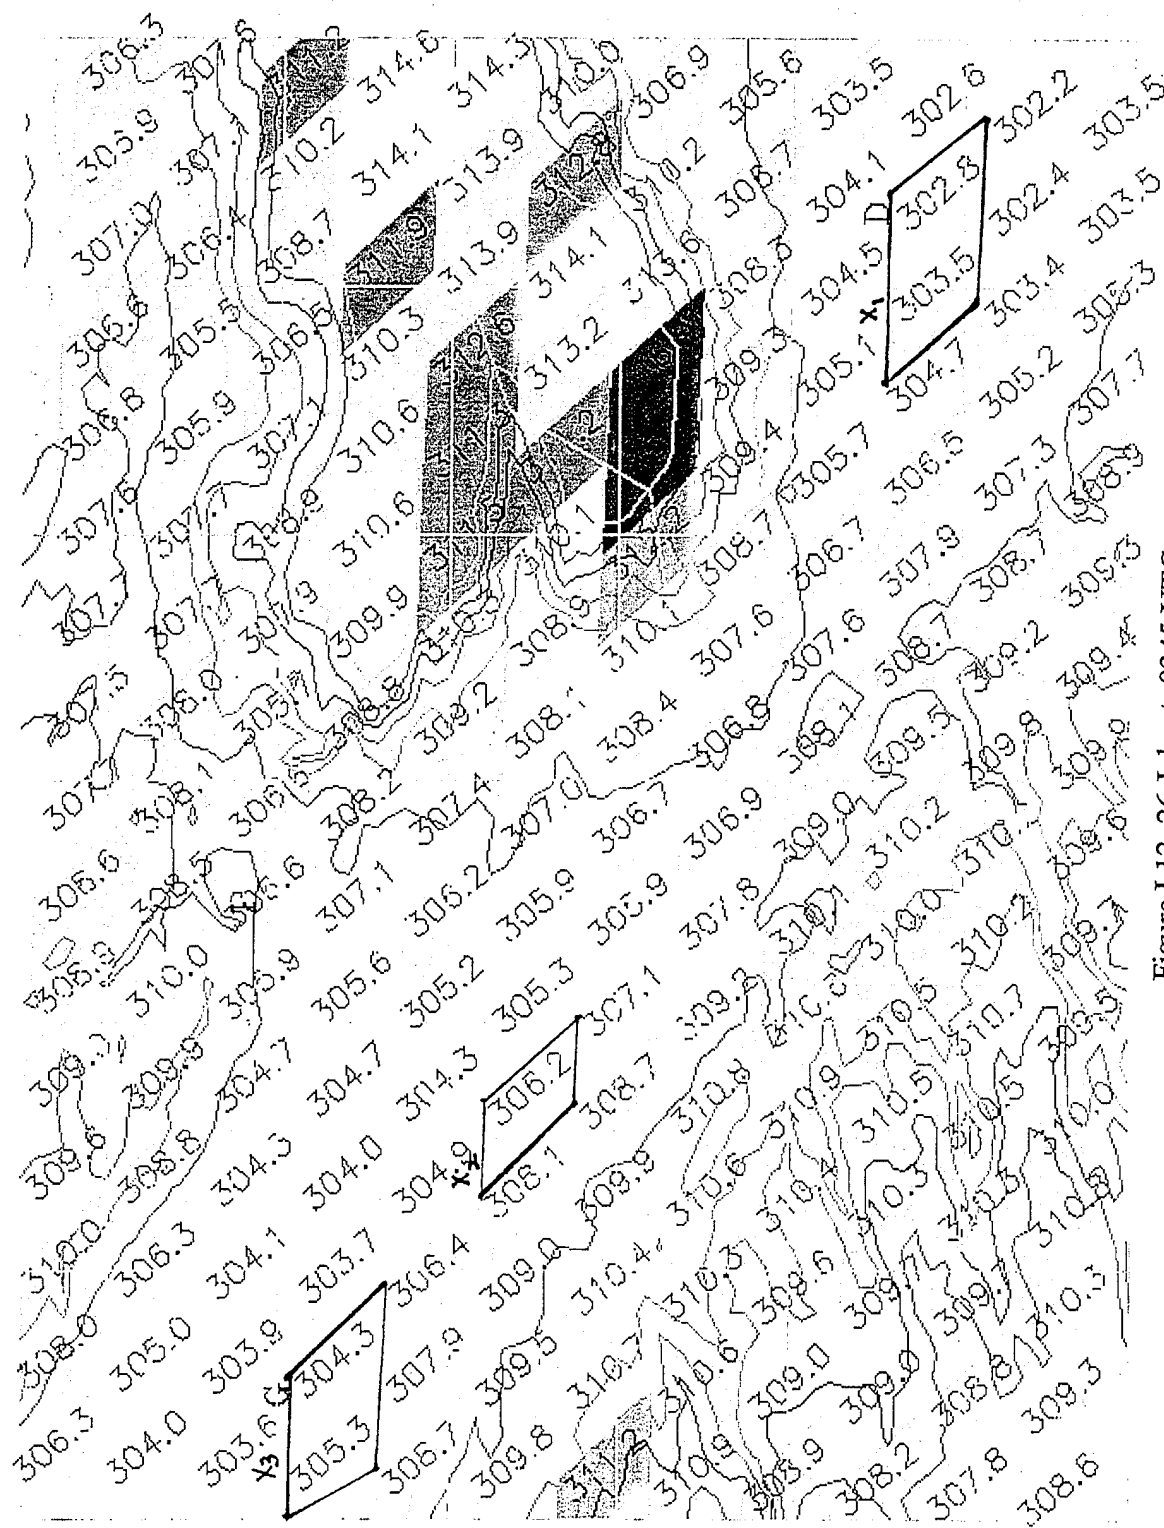 306.3 307.6 311.2 314.6 314.3 310.0 306.9 305.6 303.5 302.6 302.2 303.5
306.9 310.2 314.1 313.9 312.8 310.2 306.7 304.1 302.8 302.4 303.5
D
307.0 306.4 308.7 311.9 313.9 314.1 313.6 308.3 304.5 303.5 303.4 306.3
X1
306.6 305.5 306.5 310.3 312.6 313.2 309.3 305.1 304.7 305.2 307.7
306.8 305.9 307.1 310.6 309.4 305.7 306.5 307.3 308.9
307.6 308.9 310.6 310.1 308.7 306.7 307.9 308.7 309.3
309.9 308.9 310.1 307.6 307.6 308.7 309.2 309.4
308.0 308.8 309.2 308.1 308.4 306.8 308.1 309.5 309.8 309.9
308.1 306.5 308.2 307.4 307.0 306.7 306.9 309.0 310.2 309.6
306.6 308.5 306.6 307.1 306.2 305.9 305.9 307.8 310.1 310.0 310.2 309.7
306.9 310.0 305.9 305.6 305.2 305.3 307.1 309.2 310.5 310.7 309.5
309.9 304.7 304.7 304.3 306.2 308.7 310.8 310.9 310.5 310.5 310.0
309.6 308.8 304.3 304.0 304.9 308.1 309.9 310.6 310.4 310.3 310.6 310.8
310.0 306.3 304.1 303.7 306.4 309.0 310.4 310.3 309.6 309.7 309.7 310.3
C
308.0 305.0 303.9 304.3 307.9 309.5 310.7 310.6 309.0 309.9 308.8 309.3
X3
306.3 304.0 303.6 305.3 306.7 309.8 311.2 310.9 308.9 308.2 307.8 308.6